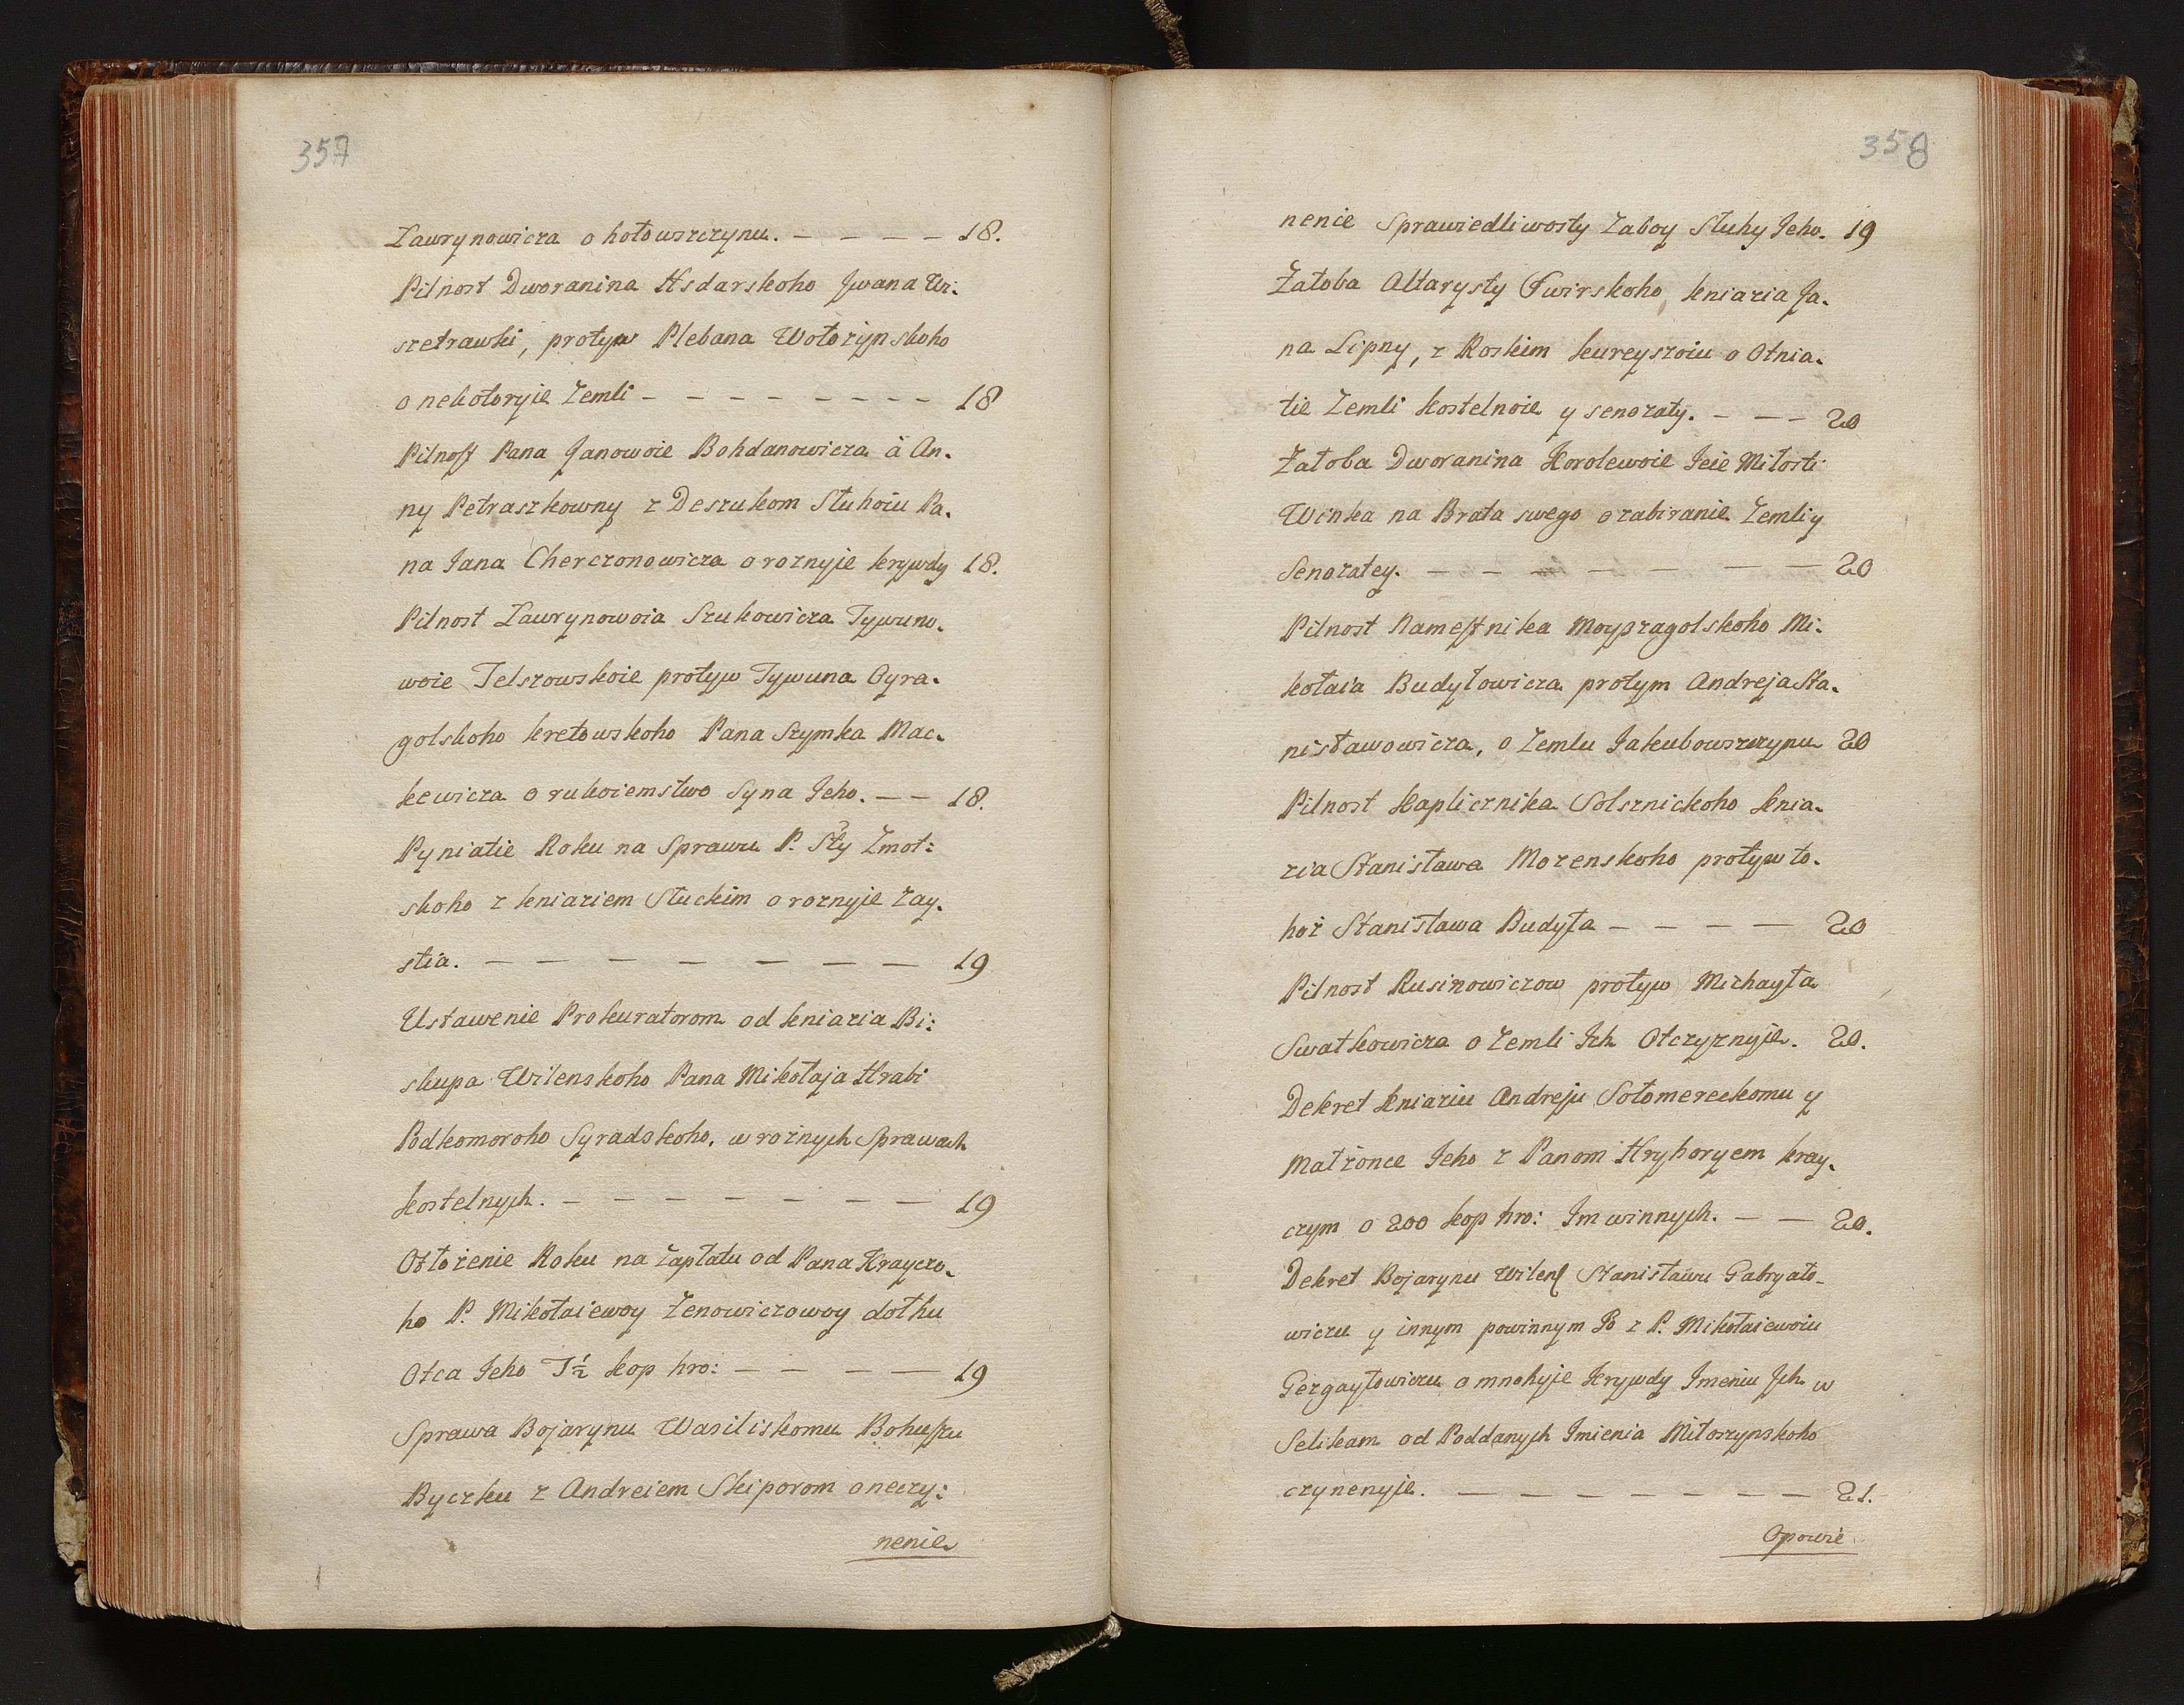 357
Ławrynowicza o hołowszczynu. — — — — 18.
Pilnost Dworanina Hsdarskoho Jwana Wi:
szetrawki, protyw Plebana Wołożynskoho
o nekotoryie Zemli — — — — — — — — 18
Pilnost Pana Janowoie Bohdanowicza à An-
ny Petraszkowny z Deszukom Słuhoiu Pa-
na Jana Cherczonowicza o roznyie krywdy 18.
Pilnost Ławrynowoia Szukowicza Tywuno-
woie Telszowskoie protyw Tywuna Oyra-
golskoho kretowskoho Pana Szymka Mac-
kewicza o rukoiemstwo Syna Jeho. — — 18.
Pyniatie Roku na Sprawu P. Sty Żmot:
skoho z kniaziem Słuckim o roznyie zay-
stia. — — — — — — — 19
Ustawenie Prokuratorom od kniazia Bi:
skupa Wilenskoho Pana Mikołaja Hrabi
Podkomoroho Syradskoho, w rożnych Sprawach
kostelnych. — — — — — — — 19
Otłożenie Roku na zapłatu od Pana Krayczo-
ho P. Mikołaiewoy Zenowiczowoy dołhu
Otca Jeho T½ kop hro: — — — — 19
Sprawa Bojarynu Wasiliskomu Bohuszu
Byczku z Andreiem Skiporom o neczy:
nenie
358
nenie Sprawiedliwosty Zaboy Słuhy Jeho. 19
Żałoba Ałtarysty Swirskoho kniazia Ja-
na Lipny, z Roskim kureyszoiu o Otnia-
tie Zemli kostelnoie y senożaty. — — — 20
Żałoba Dworanina Korolewoie Jeie Miłosti
Winka na Brata swego o zabiranie Zemli y
Senożatey. — — — — — — — 20
Pilnost Namestnika Moyszagolskoho Mi:
kołaia Budyłowicza protym Andreja Sta-
nisławowicza, o Zemlu Jakubowszczynu 20
Pilnost Kaplicznika Solsznickoho knia-
zia Stanisława Mozenskoho protyw to-
hoż Stanisława Budyła — — — — 20
Pilnost Rusinowiczow protyw Michayła
Swatkowicza o Zemli Jch Otczyznyie. 20.
Dekret kniaziu Andreju Sołomereckomu y
Małżonce Jeho z Panom Hryhoryem kray-
czym o 200 kop hro: Jm winnych. — — 20.
Dekret Bojarynu Wilen Stanisławu Gabryało-
wiczu y innym powinnym z P. Mikołaiewoiu
Gezgayłowiczu o mnohyie Krywdy Jmeniu Jch w
Selikam od Poddanych Jmienia Miłoszynskoho
czynenyie. — — — — — — — 21.
Opowie